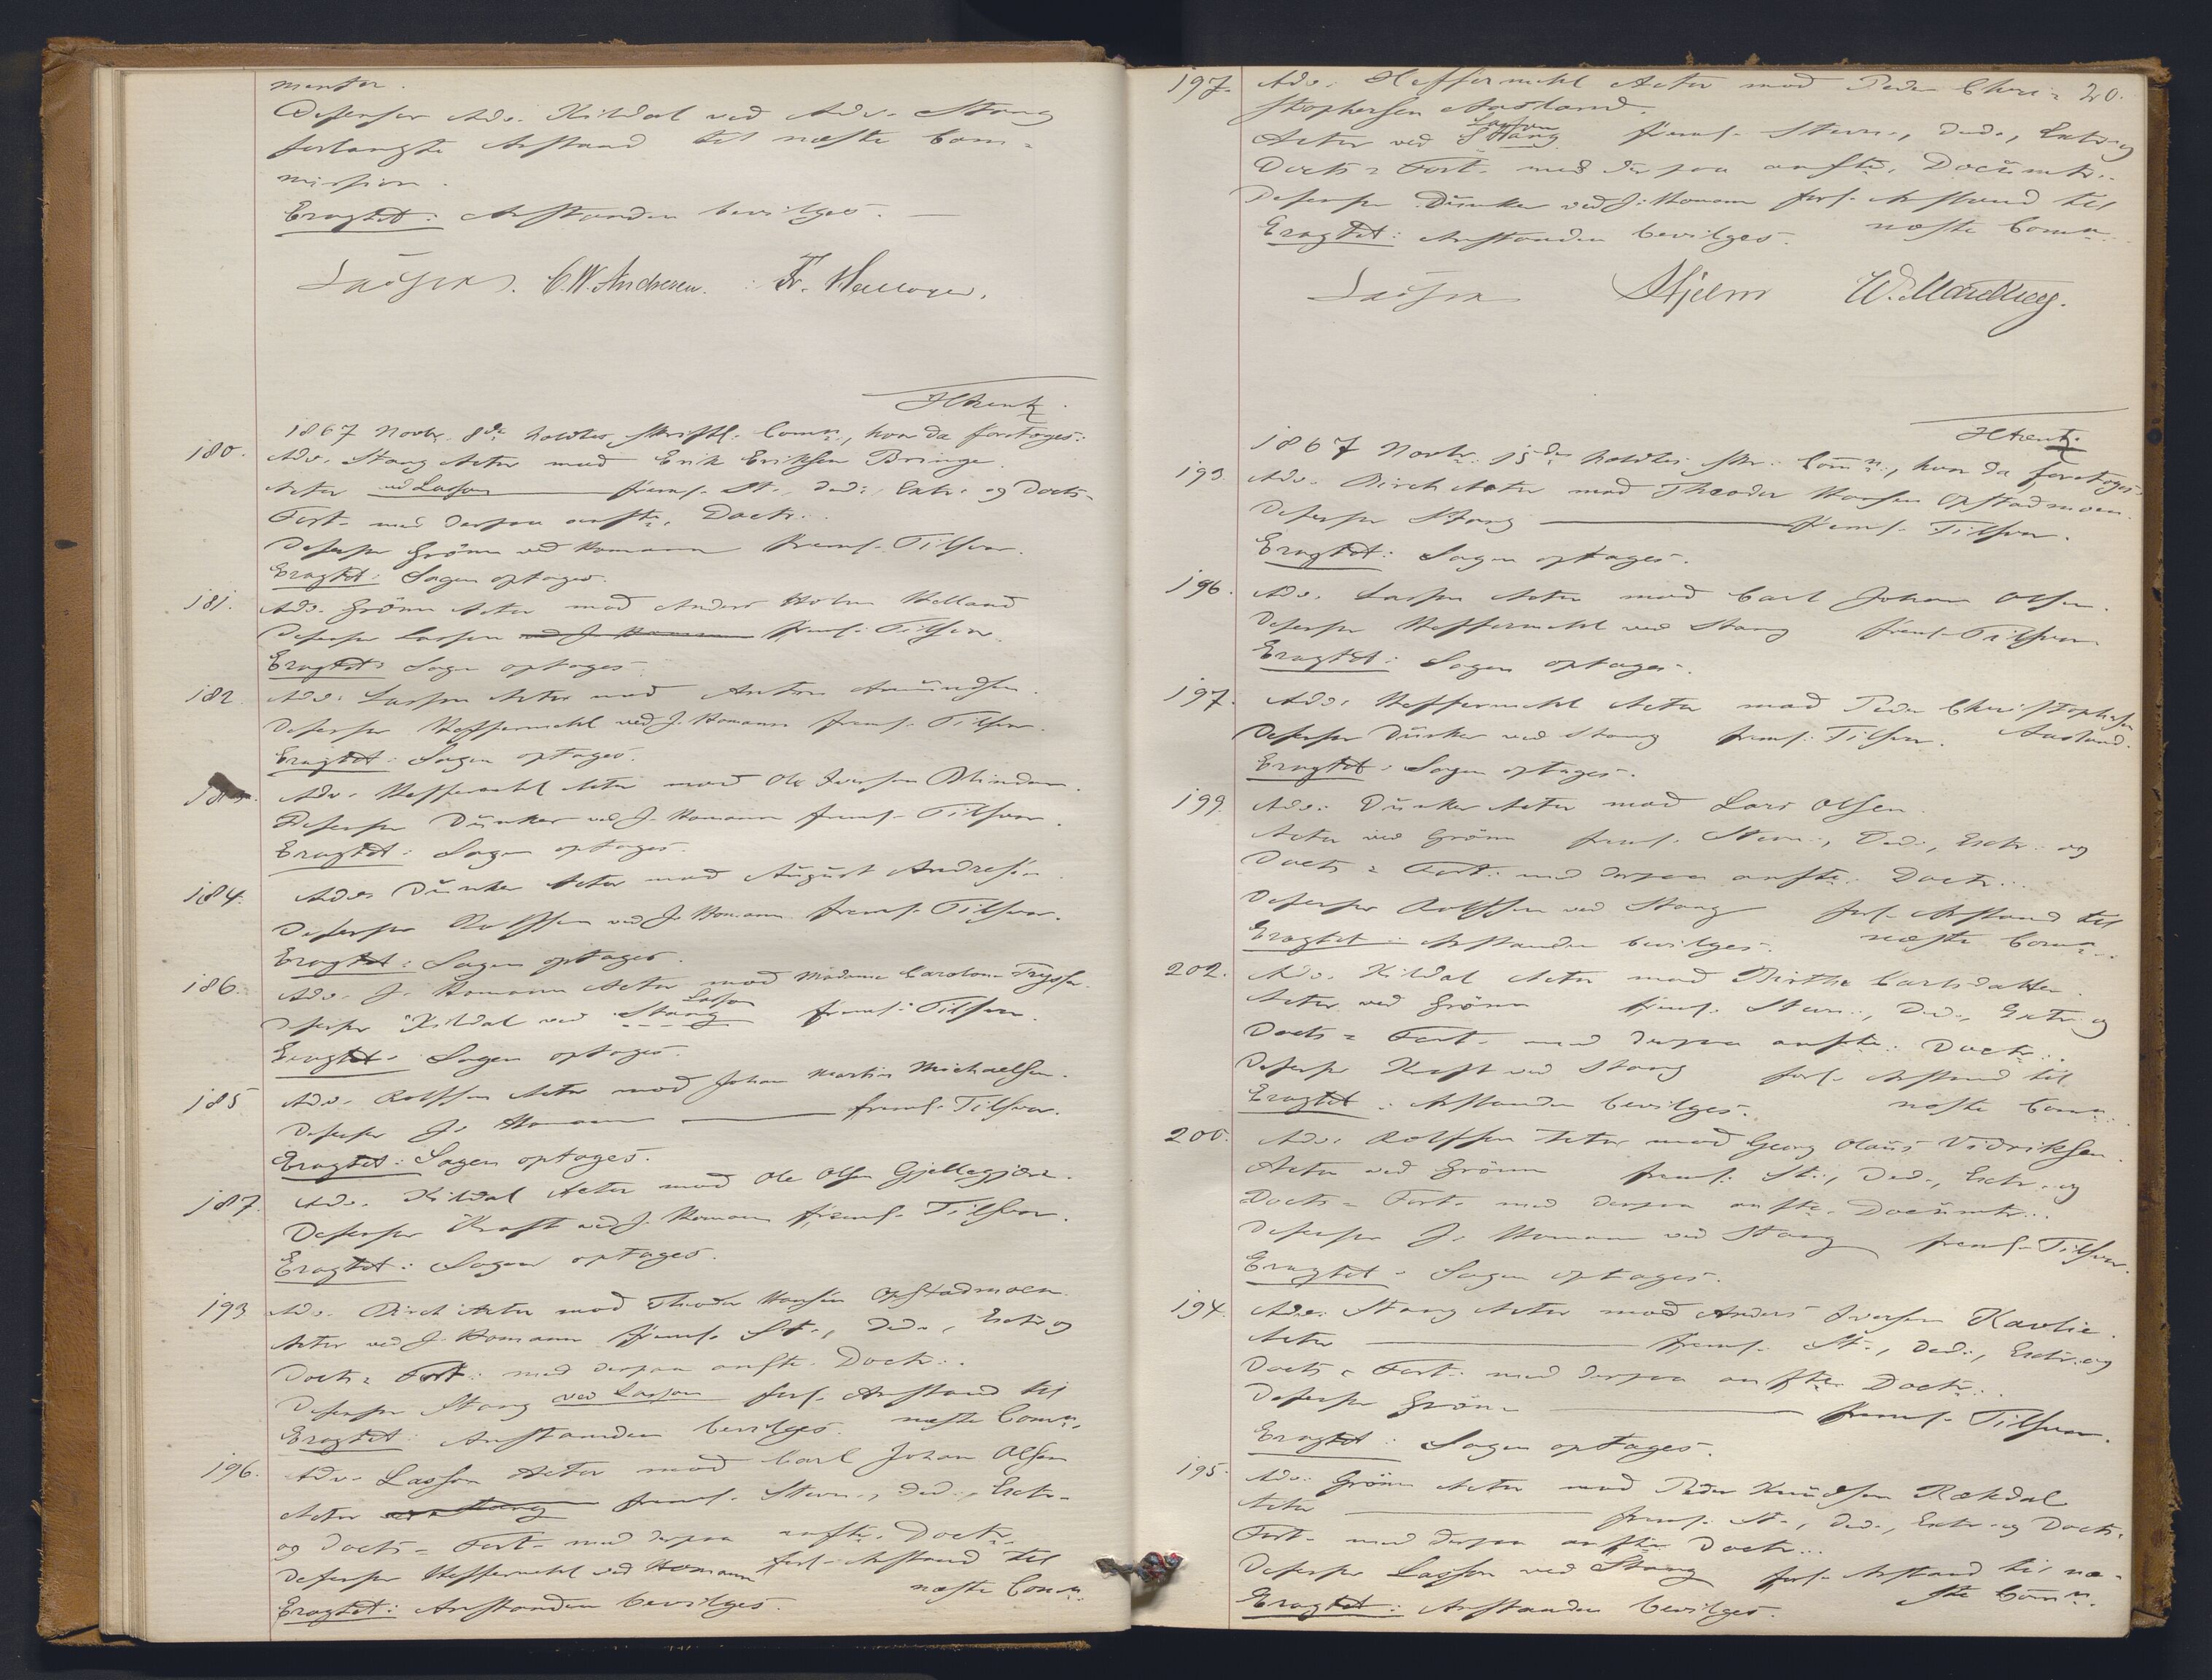 menter.
Defensor Adv. Kildal ved Adv. Stang
forlangte Anstand til næste Com=
mission.
Eragtet: Anstanden bevilges.
Lasson. C.W. Andresen. Fr. Hallager.
1867 Novbr. 8de holdtes skriftl. Comn., hvor da foretoges:
180. Adv. Stang Actor mod Erik Eriksen Bringe.
Actor ved Lasson freml. St., Ded., Extr. og Docts=
Fort. med derpaa anførte Doctr.
Defensor Grönn ved Homann freml. Tilsvar.
Eragtet: Sagen optages.
181. Adv. Grönn Actor mod Anders Holm Helland
Defensor Lasson ved J. Homann freml. Tilsvar.
Eragtet: Sagen optages.
182. Adv. Lasson Actor mod Anton Amundsen.
Defensor Heffermehl ved J. Homann freml. Tilsvar.
Eragtet: Sagen optages.
Adv. Heffermehl Actor mod Ole Iversen Blindern.
Defensor Dünker ved J. Homann freml. Tilsvar.
Eragtet: Sagen optages.
184. Adv. Dünker Actor mod August Andresen.
Defensor Rolfsen ved J. Homann freml. Tilsvar.
Eragtet: Sagen optages.
186. Adv. J. Homann Actor mod Madame Caroline
Defensor Kildal ved Stang Lasson freml. Tilsvar.
Eragtet: Sagen optages.
185 Adv. Rolfsen Actor mod Johan Martin Michaelsen.
Defensor J. Homann freml. Tilsvar.
Eragtet: Sagen optages.
187. Adv. Kildal Actor mod Ole Olsen Gjellegjerde.
Defensor Kraft ved J. Homann freml. Tilsvar.
Eragtet: Sagen optages.
193 Adv. Birch Actor mod Theodor Hansen Opstadmoen.
Actor ved J. Homann freml. St., Ded., Extr. og
Docts= Fort. med derpaa anførte Doctr..
Defensor Stang ved Lasson forl. Anstand til
Eragtet: Anstanden bevilges. næste Comn.
196. Adv. Lasson Actor mod Carl Johan Olsen
Actor ved Stang freml. Stevn., Ded., Extr.
og Docts= Fort. med derpaa anførte Doctr.
Defensor Heffermehl ved Homann forl. Anstand til
Eragtet: Anstanden bevilges. næste Comn.
20.
197. Adv. Heffermehl Actor mod Peder Chri=
stophersen Aasland.
Actor ved Stang Lasson freml. Stevn., Ded., Extr. og
Docts= Fort. med derpaa anførte Documtr.
Defensor Dünker ved J. Homann forl. Anstand til
Eragtet: Anstanden bevilges. næste Comn.
Lasson Hjelm
1867 Novbr. 15de holdtes skr. Comn., hvor da foretoges:
193. Adv. Birch Actor mod Theodor Hansen Opstadmoen.
Defensor Stang freml. Tilsvar.
Eragtet: Sagen optages.
196. Adv. Lasson Actor mod Carl Johan Olsen.
Defensor Heffermehl ved Stang freml. Tilsvar
Eragtet: Sagen optages.
197. Adv. Heffermehl Actor mod Peder Christophersen
Defensor Dünker ved Stang freml. Tilsvar. Aasland.
Eragtet: Sagen optages.
199. Adv. Dünker Actor mod Lars Olsen.
Actor ved Grönn freml. Stevn., Ded., Extr. og
Docts= Fort. med derpaa anførte Doctr..
Defensor Rolfsen ved Stang forl. Anstand til
Eragtet: Anstanden bevilges. næste Comn.
202. Adv. Kildal Actor mod Birthe Carlsdatter.
Actor ved Grönn freml. Stevn., Ded., Extr. og
Docts= Fort. med derpaa anførte Doctr..
Defensor Kraft ved Stang forl. Anstand til
Eragtet: Anstanden bevilges. næste Comn.
200. Adv. Rolfsen Actor mod Georg Olaus Vidriksen.
Actor ved Grönn freml. St., Ded., Extr. og
Docts= Fort. med derpaa anførte Documtr..
Defensor J. Homann ved Stang freml. Tilsvar.
Eragtet: Sagen optages.
194. Adv. Stang Actor mod Anders Iversen Kavlie.
Actor freml. St., Ded., Extr. og
Docts= Fort. med derpaa anførte Doctr..
Defensor Grönn freml. Tilsvar.
Eragtet: Sagen optages.
195. Adv. Grönn Actor mod Peder Knudsen Rækdal
Actor freml. St., Ded., Extr. og Docts=
Fort. med derpaa anførte Doctr...
Defensor Lasson ved Stang forl. Anstand til næ=
Eragtet: Anstanden bevilges. ste Comn.